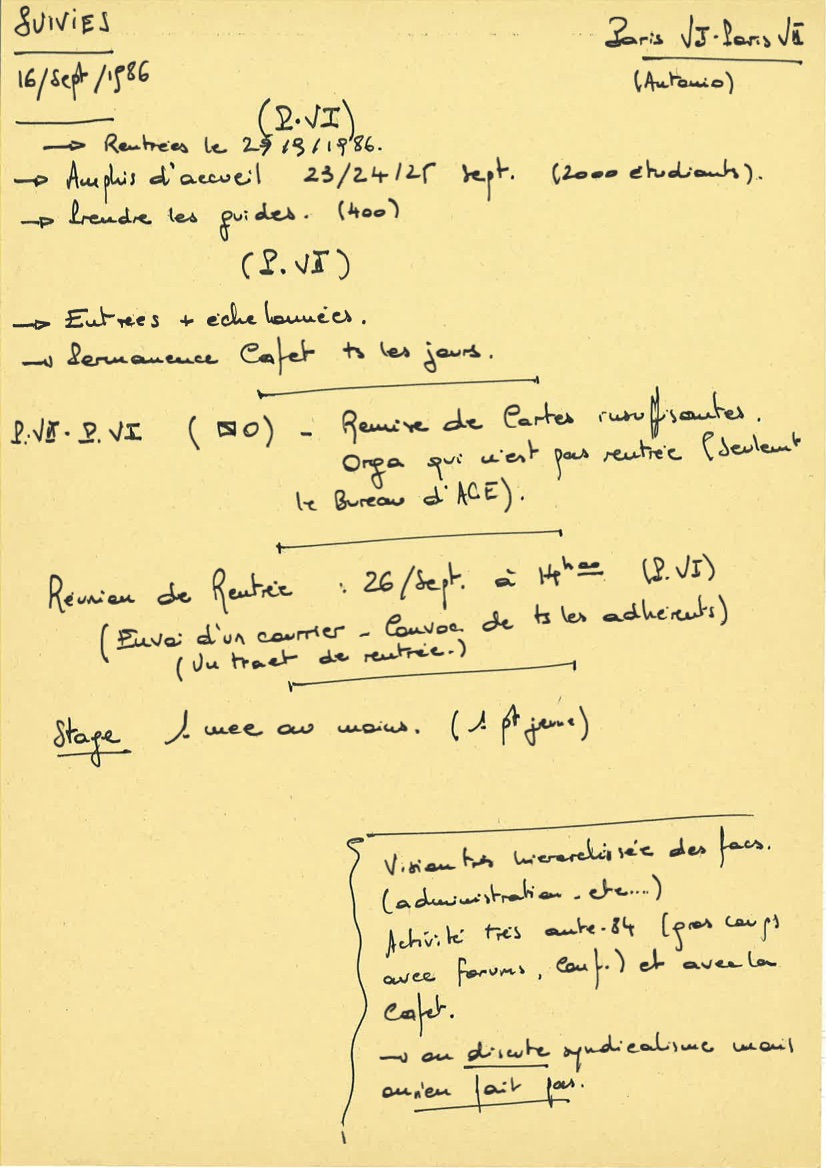 SUIVIES
16/Sept/1986
Paris VI-Paris VII
(Antonio)
(P.VI)
→ Rentrées le 29/9/1986.
→ Amphis d'accueil 23/24/25 sept. (2000 étudiants).
→ Prendre les guides. (400)
(P. VII)
→ Entrées + échelonnées.
→ Permanence Cafet ts les jours.
P.VII - P. VI ( O) - Remise de Cartes insuffisantes.
Orga qui n'est pas rentrée (Seulemt
le Bureau d'AGE).
Réunion de Rentrée : 26/Sept. à 14h00 (P.VI)
(Envoi d'un courrier - Convoc de ts les adhérents)
(Un tract de rentrée.)
Stage 1 mec au moins. (1 pt jeune)
Vision très hierarchissée des facs.
(administration - etc....)
Activité très ante-84 (gros coups
avec forums, Conf.) et avec la
Cafet.
→ on discute syndicalisme mais
on n'en fait pas.